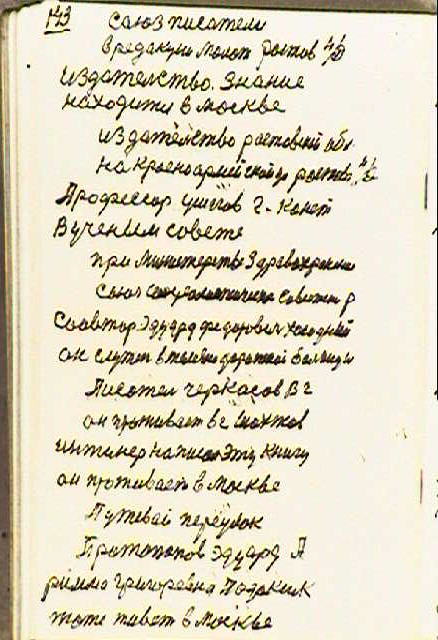 143
союз писатели
в редакуии Молот ростов н/Д
издателство. Знание
находити в москве
издателство ростовский обл
на красноармейской ур ростов н/Д
Профессор г-
В ученим совете
при Министерство Здравохронени
Союз Советски р
Соовтор Эдуард федорович холодний
он служит в дорожной болници
Писотел черкасов в г
он проживает в г шахтов
инженер написал Эту Книгу
он проживает в Москве
Путевай переулок
Протопопов Эдуард А
римма григоревна
тоже живет в Москве